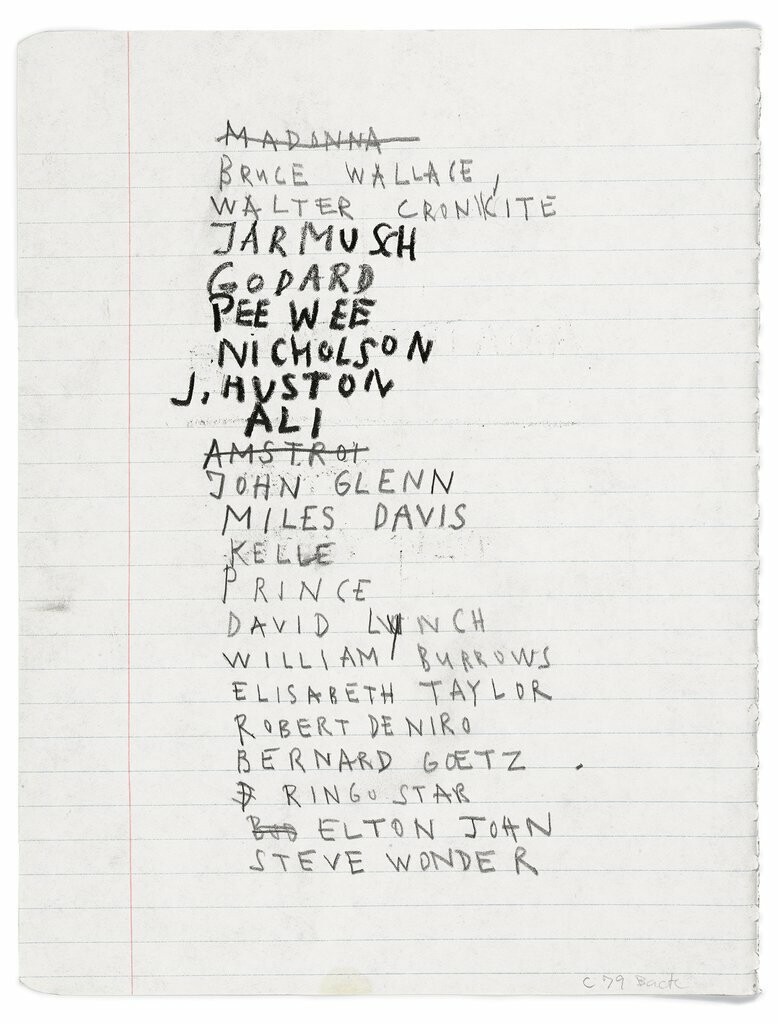 MADONNA
BRUCE WALLACE,
WALTER CRONKITE
JARMUSCH
GODARD
PEE WEE
NICHOLSON
J. HUSTON
ALI
AMSTROI
JOHN GLENN
MILES DAVIS
KELLE
PRINCE
DAVID LYNCH
WILLIAM BURROWS
ELISABETH TAYLOR
ROBERT DE NIRO
BERNARD GOETZ .
RINGO STAR
ELTON JOHN
STEVE WONDER
C 79 Back